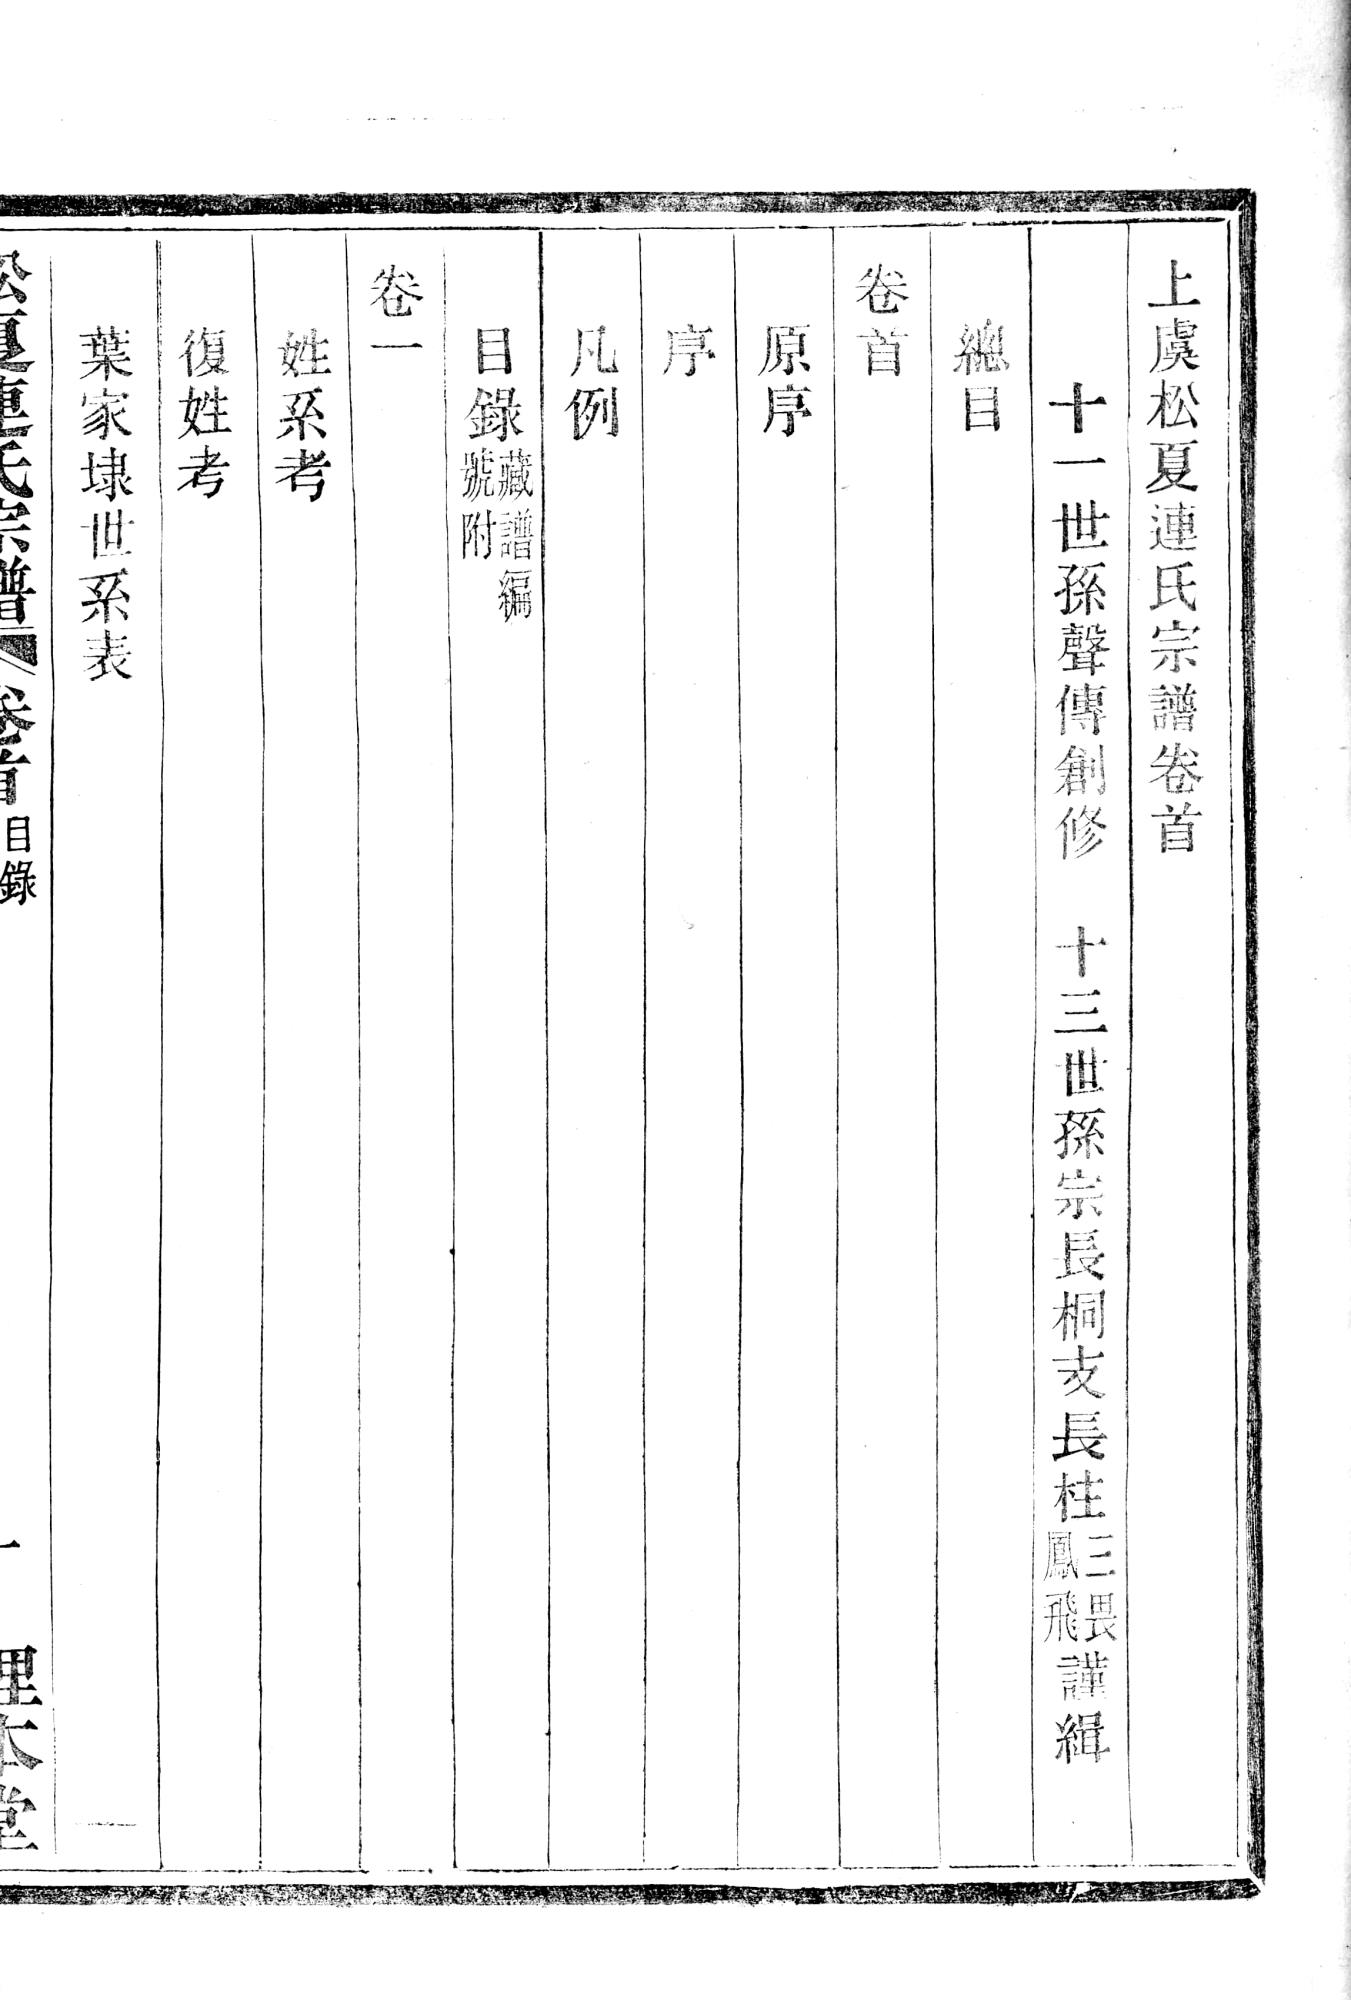 上虞松夏連氏宗譜卷首
十一世孫聲傳創修　十三世孫宗長桐支長柱三畏鳳飛謹緝
總目
卷首
原序
序
凡例
目錄藏譜編號附
卷一
姓系考
復姓考
葉家埭世系表
松夏連氏宗譜　卷首　目錄　一　理本堂